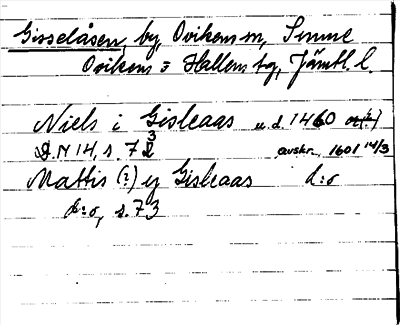 Gisselåsen, by, Ovikens sn,
Ovikens o Hallens tg, Jämtl. l.
Niels i Gisleaas u.d. 1460
D.N 14, s. 72 3 avskr. 1601 14/3
Mattis (?) ey Gisleaas d:o
d:o, s. 73